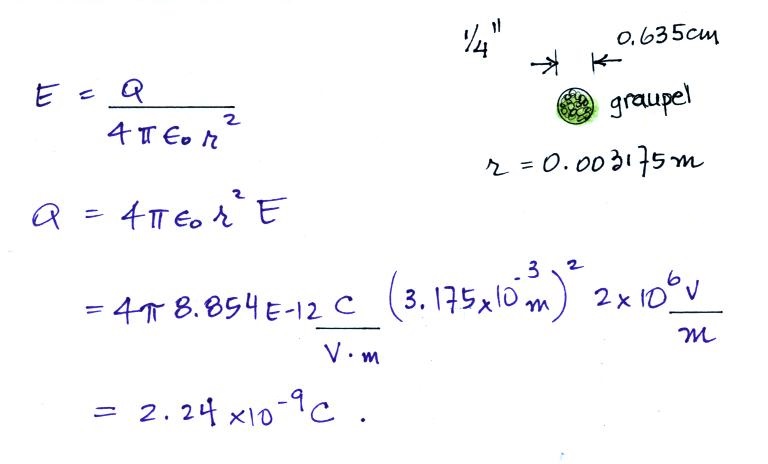 1/4" 0.635cm
graupel
r = 0.003175m
E = Q / 4π ϵ₀ r²
Q = 4π ϵ₀ r² E
= 4π 8.854E-12 C / V·m (3.175x10⁻³ m)² 2x10⁶ V / m
= 2.24 x10⁻⁹ C .